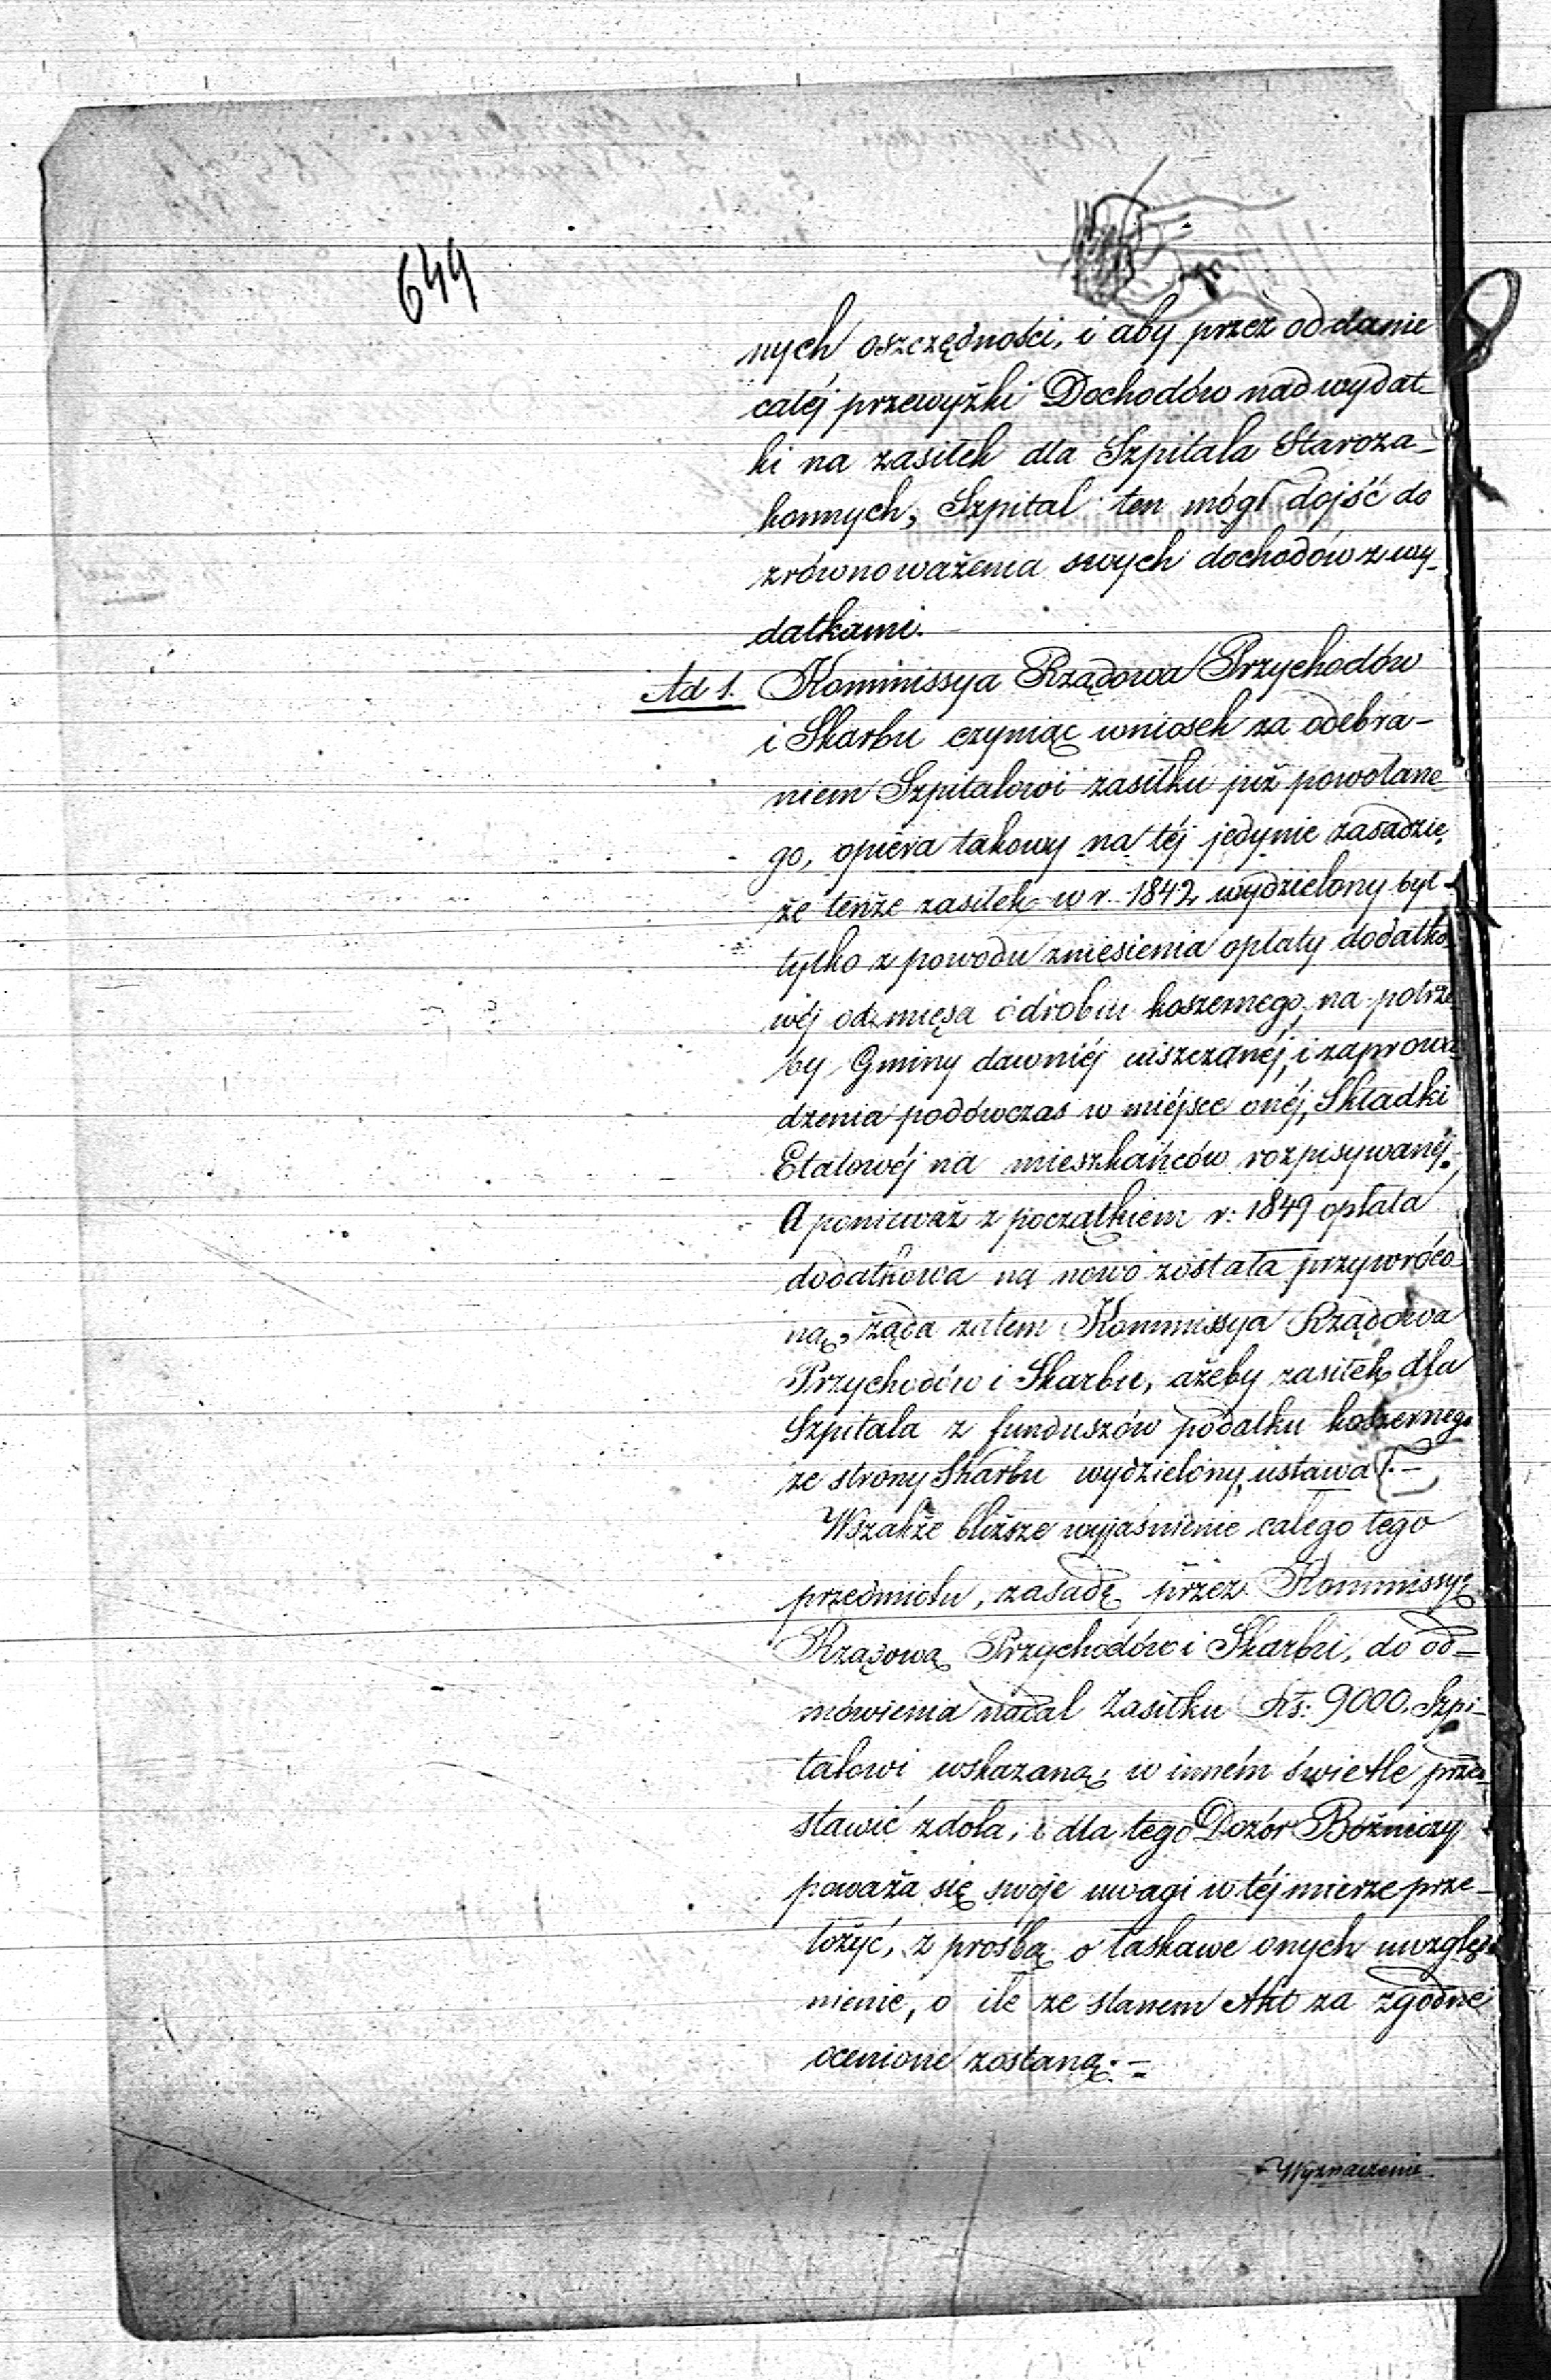 649
nych oszczędności, i aby przez oddanie
całéj przewyżki Dochodów nad wydat-
ki na zasiłek dla Szpitala Staroza-
konnych, Szpital ten mógł dojść do
zrównoważenia swych dochodów z wy-
datkami.
Ad 1. Kommissya Rządowa Przychodów
i Skarbu czyniąc wniosek za odebra-
niem Szpitalowi zasiłku już powołane-
go, opiéra takowy na téj jedynie zasadzie,
że tenże zasiłek w r. 1842 wydzielony był
tylko z powodu zniesienia opłaty dodatko-
wéj od mięsa i drobiu koszernego, na potrze
by Gminy dawniéj uiszczanéj, i zaprowa-
dzenia podówczas w miéjsce onéj, Składki
Etatowéj na mieszkańców rozpisywanéj.
A ponieważ z początkiem r: 1849 opłata
dodatkowa na nowo została przywróco
ną, żąda zatem Kommissya Rządowa
Przychodów i Skarbu, ażeby zasiłek dla
Szpitala z funduszów podatku koszernego
ze strony Skarbu wydzielony, ustawał.-
Wszakże bliższe wyjaśnienie całego tego
przedmiotu, zasadę przez Kommissyę
Rządową Przychodów i Skarbu, do od=
mówienia nadal zasiłku Rs: 9000. Szpi-
talowi wskazaną, w inném świetle prze-
stawić zdoła, i dla tego Dozór Bóżniczy
poważa się swoje uwagi w téj mierze prze-
łożyć, z prośbą o łaskawe onych uwzględ
nienie, o ile ze stanem Akt za zgodne
ocenione zostaną.-
Wyznaczenie